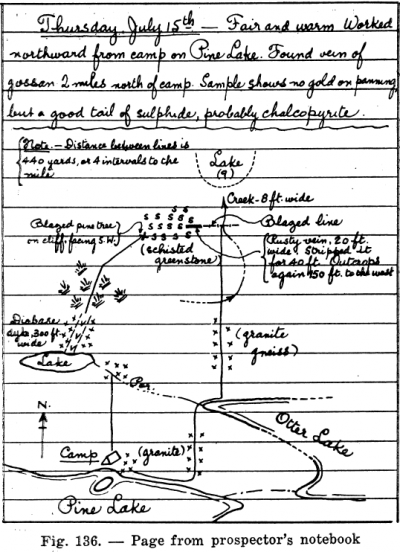 Thursday. July 15th — Fair and warm Worked
northward from camp on Pine Lake. Found vein of
gossan 2 miles north of camp. Sample shows no gold on panning,
but a good tail of sulphide, probably chalcopyrite.
Note. — Distance between lines is
440 yards, or 4 intervals to the
mile
Lake
(?)
Creek-8 ft. wide
Blazed pine tree
on cliff, facing S.W.
Blazed line
(schisted
greenstone)
Rusty vein, 20 ft.
wide. Stripped it
for 40 ft. Outcrops
again 450 ft. to the west
Diabase
dyke, 300 ft.
wide
(granite
gneiss)
Lake
Por.
N.
Otter Lake
Camp
(granite)
Pine Lake
Fig. 136. — Page from prospector's notebook